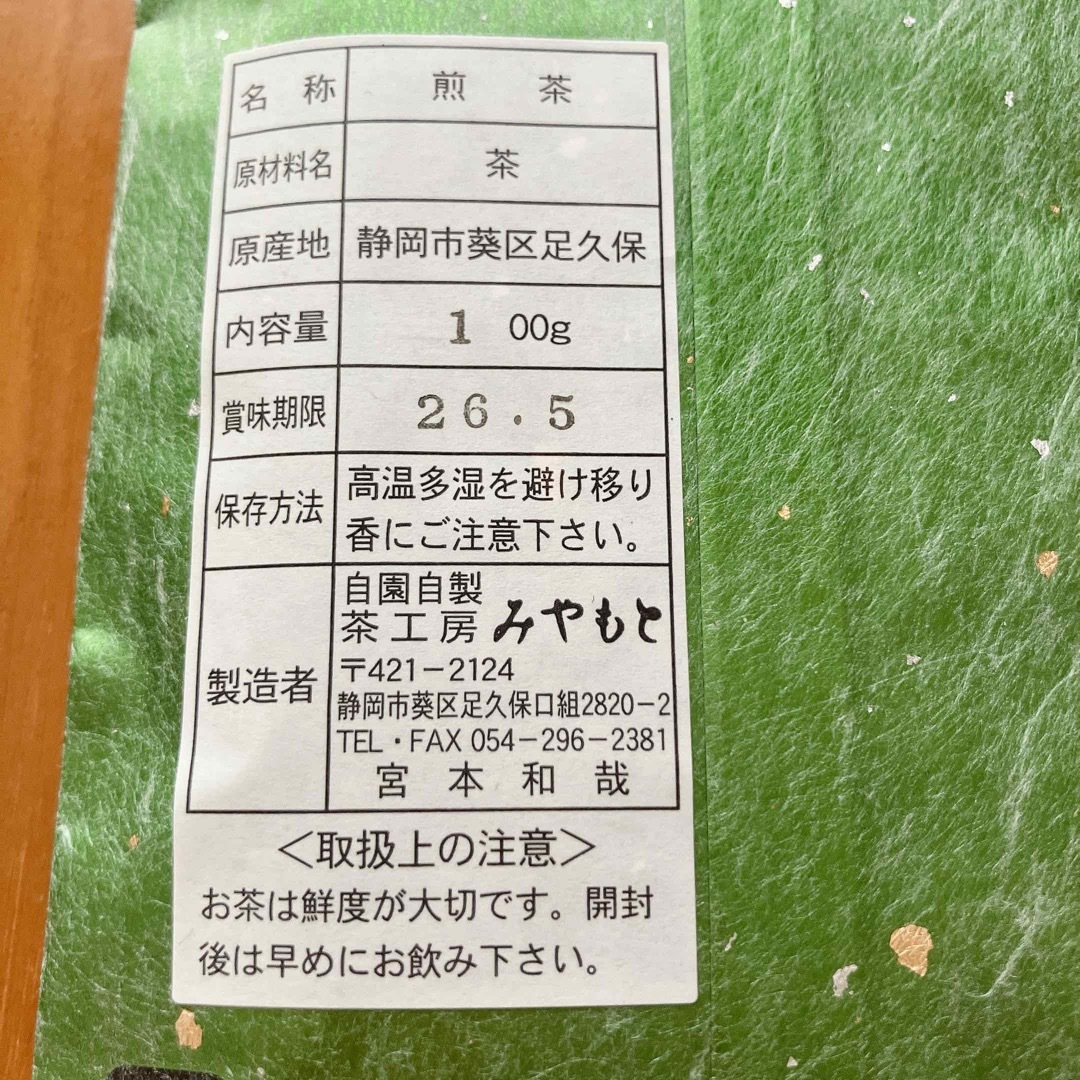 名称 煎茶
原材料名 茶
原産地 静岡市葵区足久保
内容量 100g
賞味期限 26.5
保存方法 高温多湿を避け移り
香にご注意下さい。
製造者 自園自製
茶工房 みやもと
〒421-2124
静岡市葵区足久保口組2820-2
TEL・FAX 054-296-2381
宮本和哉
＜取扱上の注意＞
お茶は鮮度が大切です。開封
後は早めにお飲み下さい。